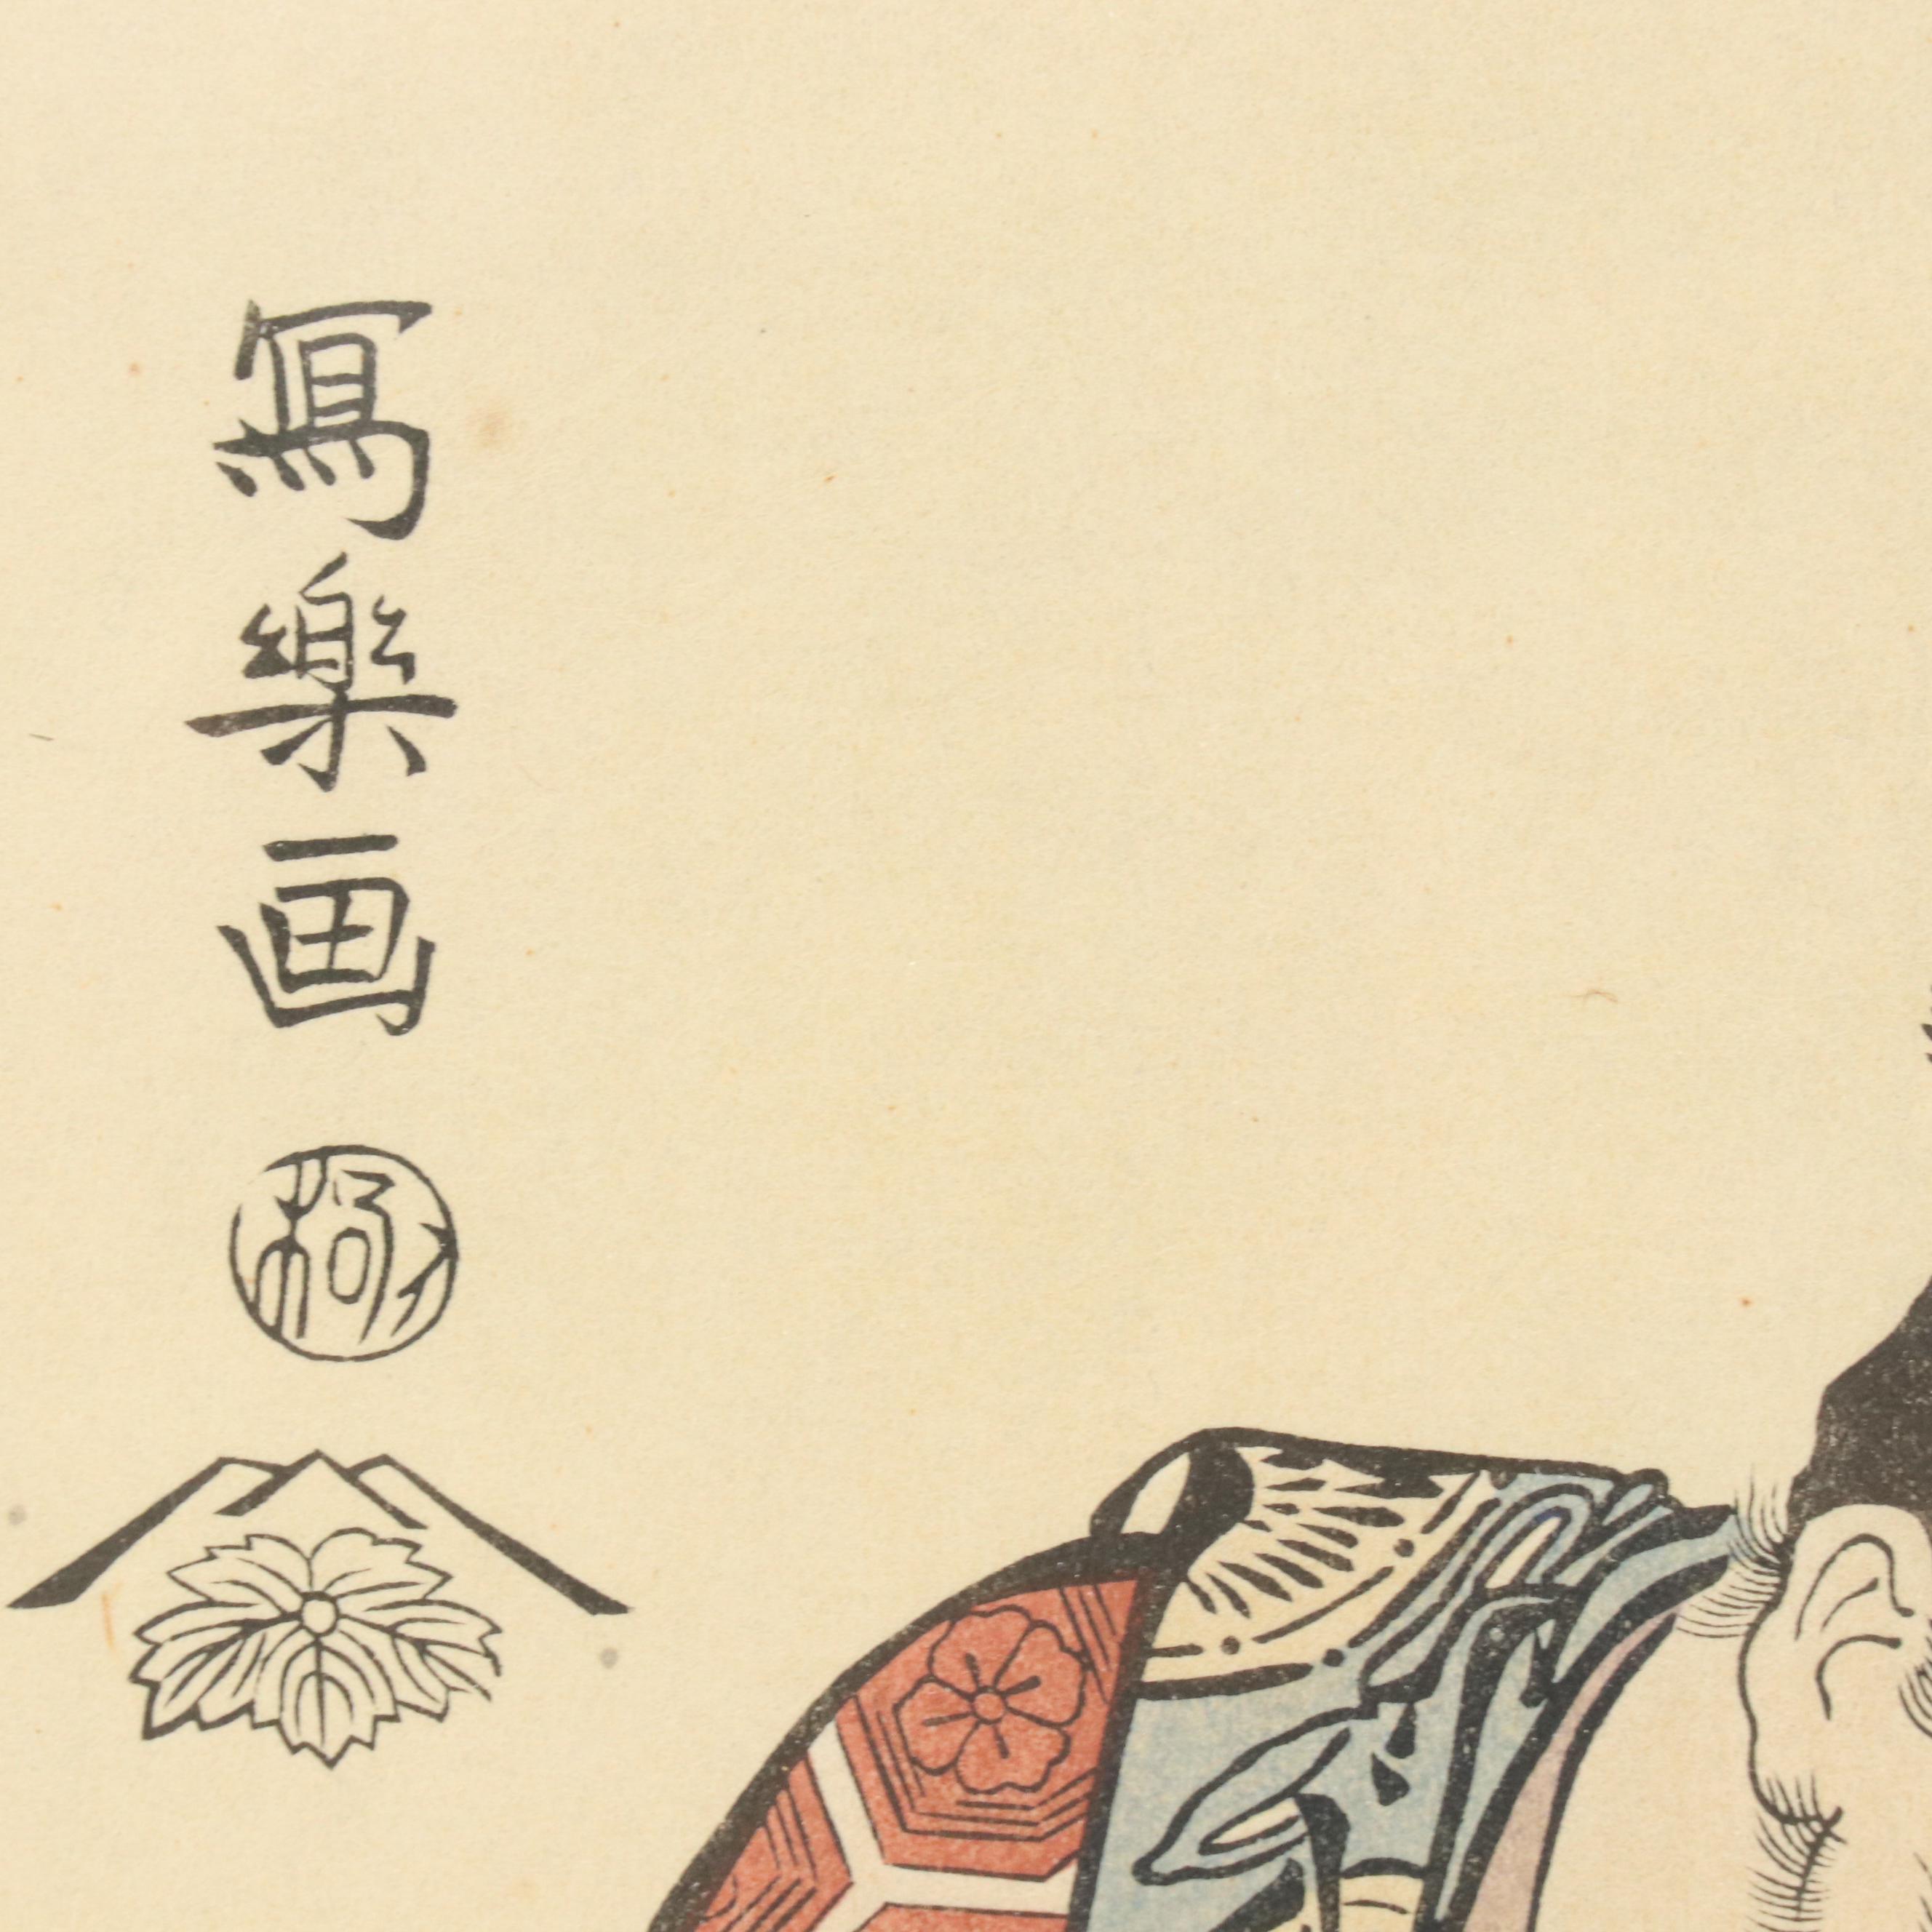 寫樂画
極